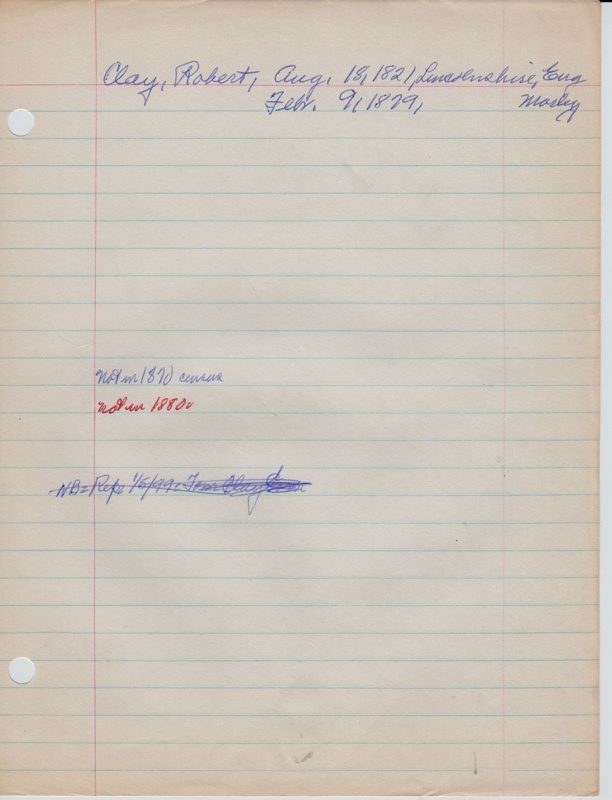 Clay, Robert, Aug. 18, 1821, Lincolnshire, Eng
Febr. 9, 1879, Mosley
not in 1870 census
not in 1880
NB = Rep: 1/5/99: